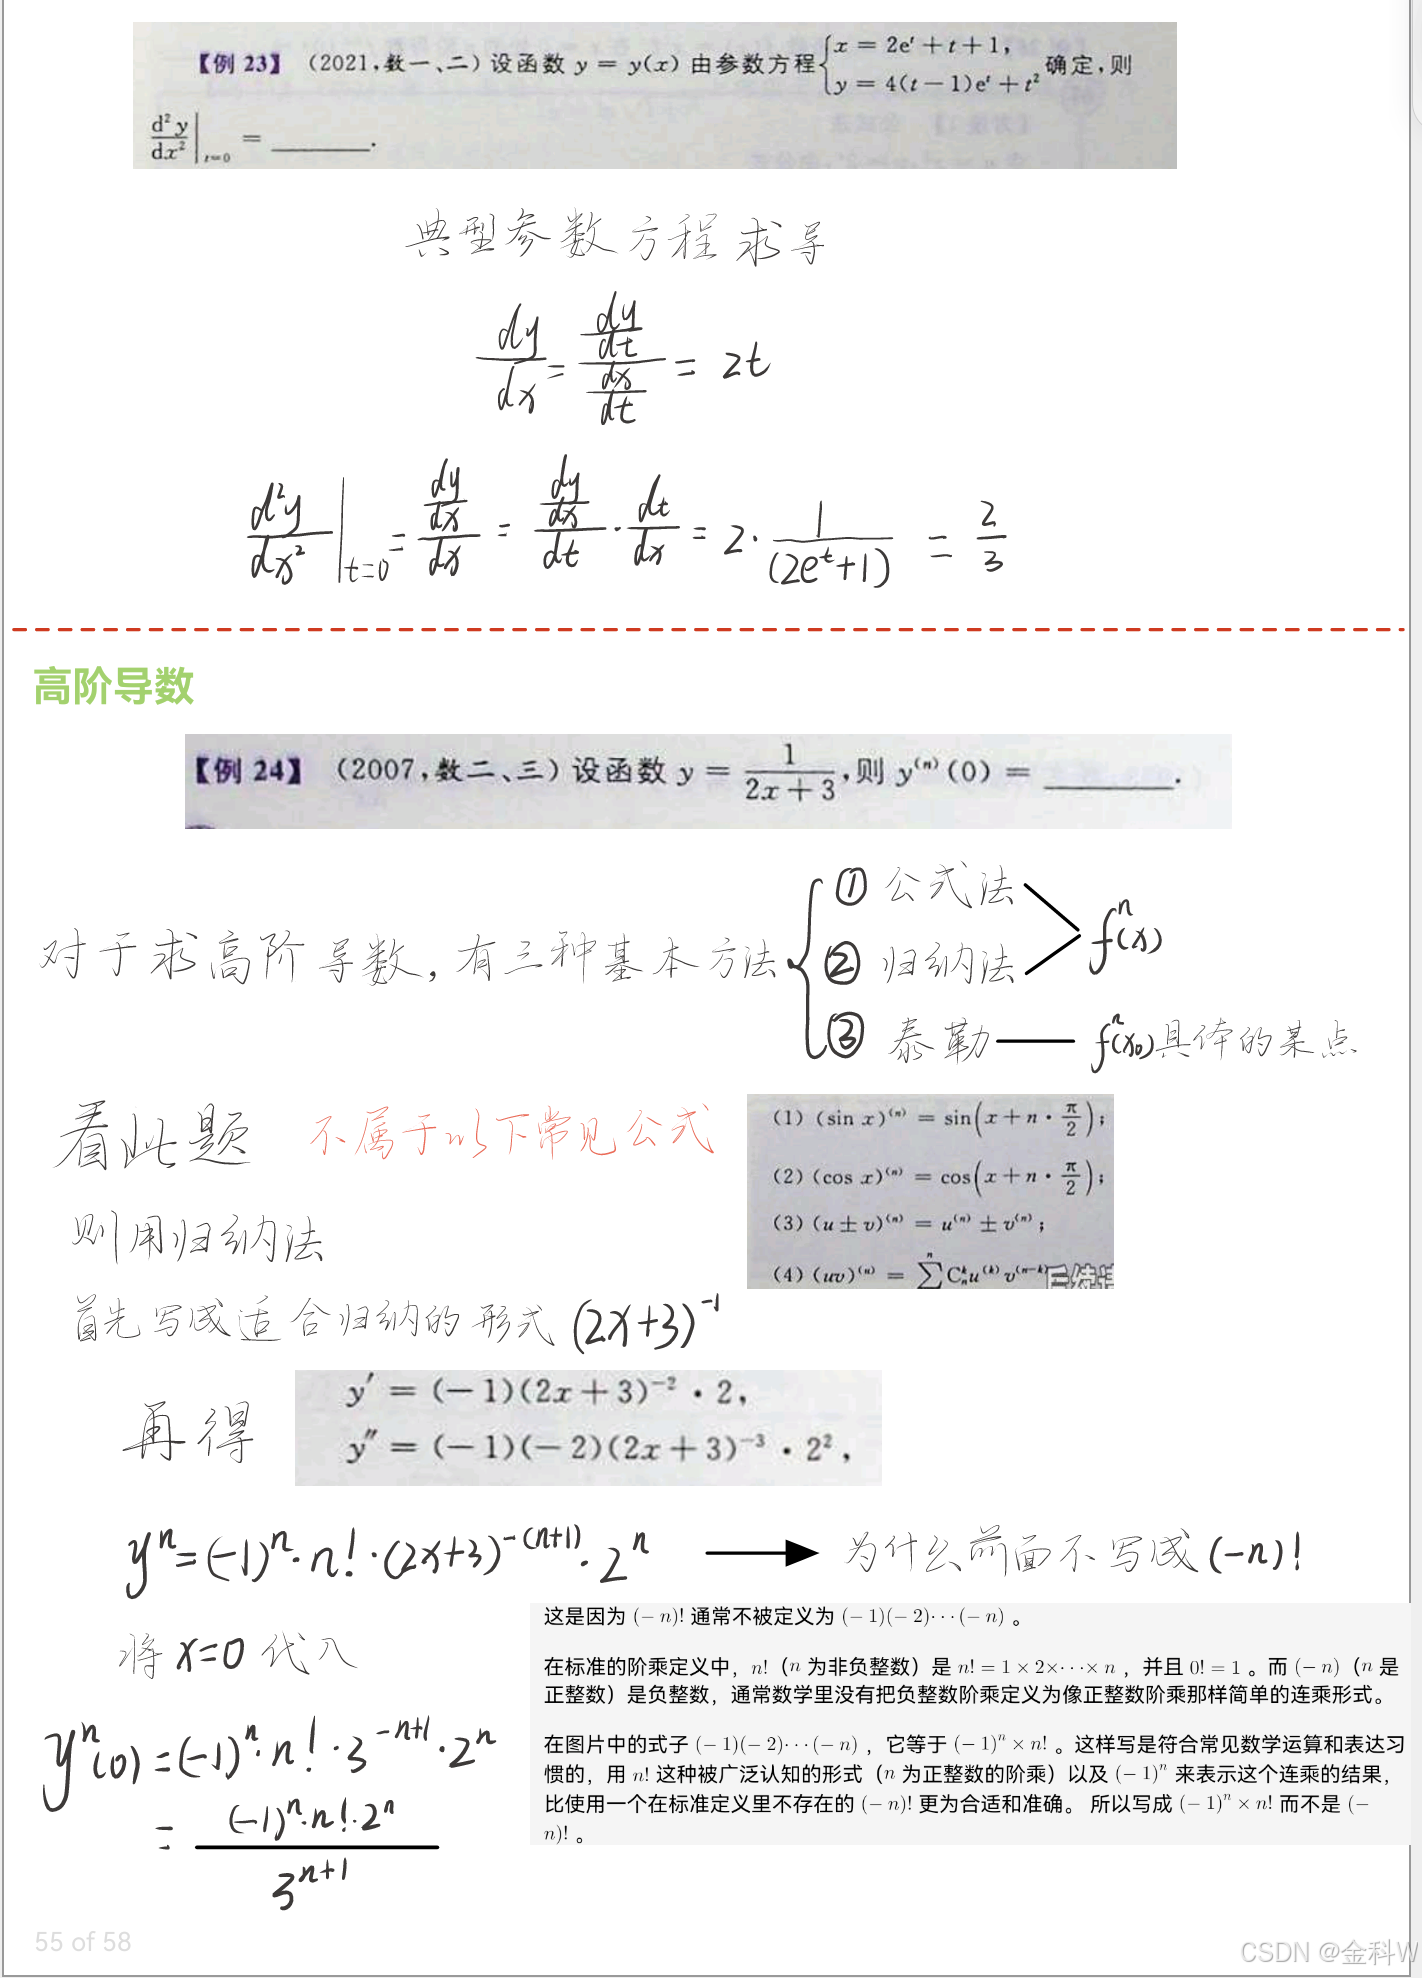 【例 23】 (2021,数一、二) 设函数 y = y(x) 由参数方程 { x = 2eᵗ + t + 1, y = 4(t − 1)eᵗ + t² 确定,则
d²y/dx² |t=0 = ______.
典型参数方程求导
dy/dx = (dy/dt)/(dx/dt) = 2t
d²y/dx² |t=0 = (dy/dx)/dx = (dy/dx)/dt · dt/dx = 2 · 1/(2eᵗ+1) = 2/3
高阶导数
【例 24】 (2007,数二、三) 设函数 y = 1/(2x + 3),则 y⁽ⁿ⁾(0) = ______.
对于求高阶导数,有三种基本方法
① 公式法
② 归纳法
fⁿ(x)
③ 泰勒 — fⁿ(x₀)具体的某点
看此题 不属于以下常见公式
(1) (sin x)⁽ⁿ⁾ = sin(x + n · π/2);
(2) (cos x)⁽ⁿ⁾ = cos(x + n · π/2);
(3) (u ± v)⁽ⁿ⁾ = u⁽ⁿ⁾ ± v⁽ⁿ⁾;
(4) (uv)⁽ⁿ⁾ = Σ Cₙᵏ u⁽ᵏ⁾ v⁽ⁿ⁻ᵏ⁾
则用归纳法
首先写成适合归纳的形式 (2x+3)⁻¹
再得
y′ = (−1)(2x + 3)⁻² · 2,
y″ = (−1)(−2)(2x + 3)⁻³ · 2²,
yⁿ = (-1)ⁿ · n! · (2x+3)^-(n+1) · 2ⁿ → 为什么前面不写成 (-n)!
这是因为 (− n)! 通常不被定义为 (− 1)(− 2)⋯(− n) 。
在标准的阶乘定义中，n!（n 为非负整数）是 n! = 1 × 2×⋯× n ，并且 0! = 1 。而 (− n)（n 是
正整数）是负整数，通常数学里没有把负整数阶乘定义为像正整数阶乘那样简单的连乘形式。
在图片中的式子 (− 1)(− 2)⋯(− n) ，它等于 (− 1)ⁿ × n! 。这样写是符合常见数学运算和表达习
惯的，用 n! 这种被广泛认知的形式（n 为正整数的阶乘）以及 (− 1)ⁿ 来表示这个连乘的结果，
比使用一个在标准定义里不存在的 (− n)! 更为合适和准确。 所以写成 (− 1)ⁿ × n! 而不是 (−
n)! 。
将 x=0 代入
yⁿ(0) = (-1)ⁿ · n! · 3^-n+1 · 2ⁿ
= (-1)ⁿ · n! · 2ⁿ / 3ⁿ⁺¹
55 of 58
CSDN @金科W